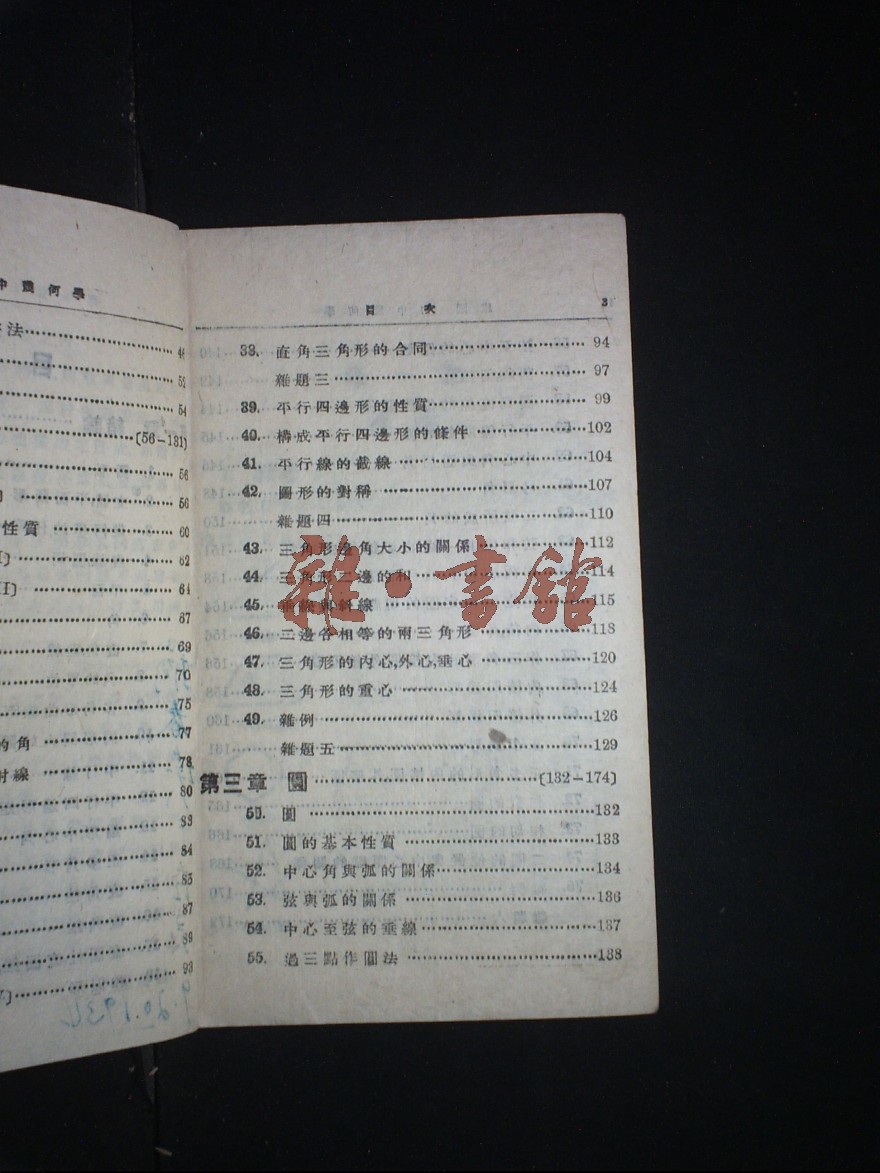 中幾何學
法 46
52
54
(56-131)
56
56
性質 60
I] 62
I] 64
67
69
70
75
的角 77
射線 78
80
83
84
85
87
89
93
9.20.193
目 次 3
38. 直角三角形的合同 94
雜題三 97
39. 平行四邊形的性質 99
40. 構成平行四邊形的條件 102
41. 平行線的截線 104
42. 圖形的對稱 107
雜題四 110
43. 三角形邊角大小的關係 112
44. 三角形二邊的和 114
45. 垂線與斜線 115
46. 二邊各相等的兩三角形 118
47. 三角形的內心,外心,垂心 120
48. 三角形的重心 124
49. 雜例 126
雜題五 129
第三章 圓 (132-174)
50. 圓 132
51. 圓的基本性質 133
52. 中心角與弧的關係 134
53. 弦與弧的關係 136
54. 中心至弦的垂線 137
55. 過三點作圓法 138
雜·書館